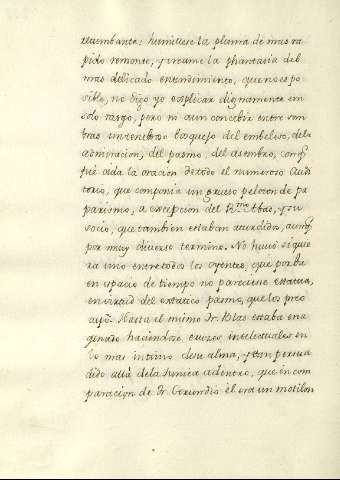 retumbante: humillese la pluma de mas ra
pido remonte, y creame la phantasia del
mas delicado entendimiento, que no es po
sible, no digo yo explicar dignamente en
solo rasgo, pero ni aun concebir entre som
bras un tenebroso bosquejo del embeleso, de la
admiracion, del pasmo, del asombro, con q̃
fué oida la oracion de todo el numeroso Audi
torio, que componia un grueso peloton de pa
panismo, a excepcion del R.mo Abad, y su
socio, que tambien estaban aturdidos, aunq̃
por muy diverso termino. No huvo siquie
ra uno entre todos los oyentes, que por bu
en espacio de tiempo no pareciese estatua,
en virtud del extatico pasmo, que los preo
cupó. Hasta el mismo Fr. Blas estaba ena
genado haciendose cruces intelectuales en
lo mas intimo de su alma, y tan persua
dido allá de la tunica adentro, que en com
paracion de Fr. Gerundio él era un motilon